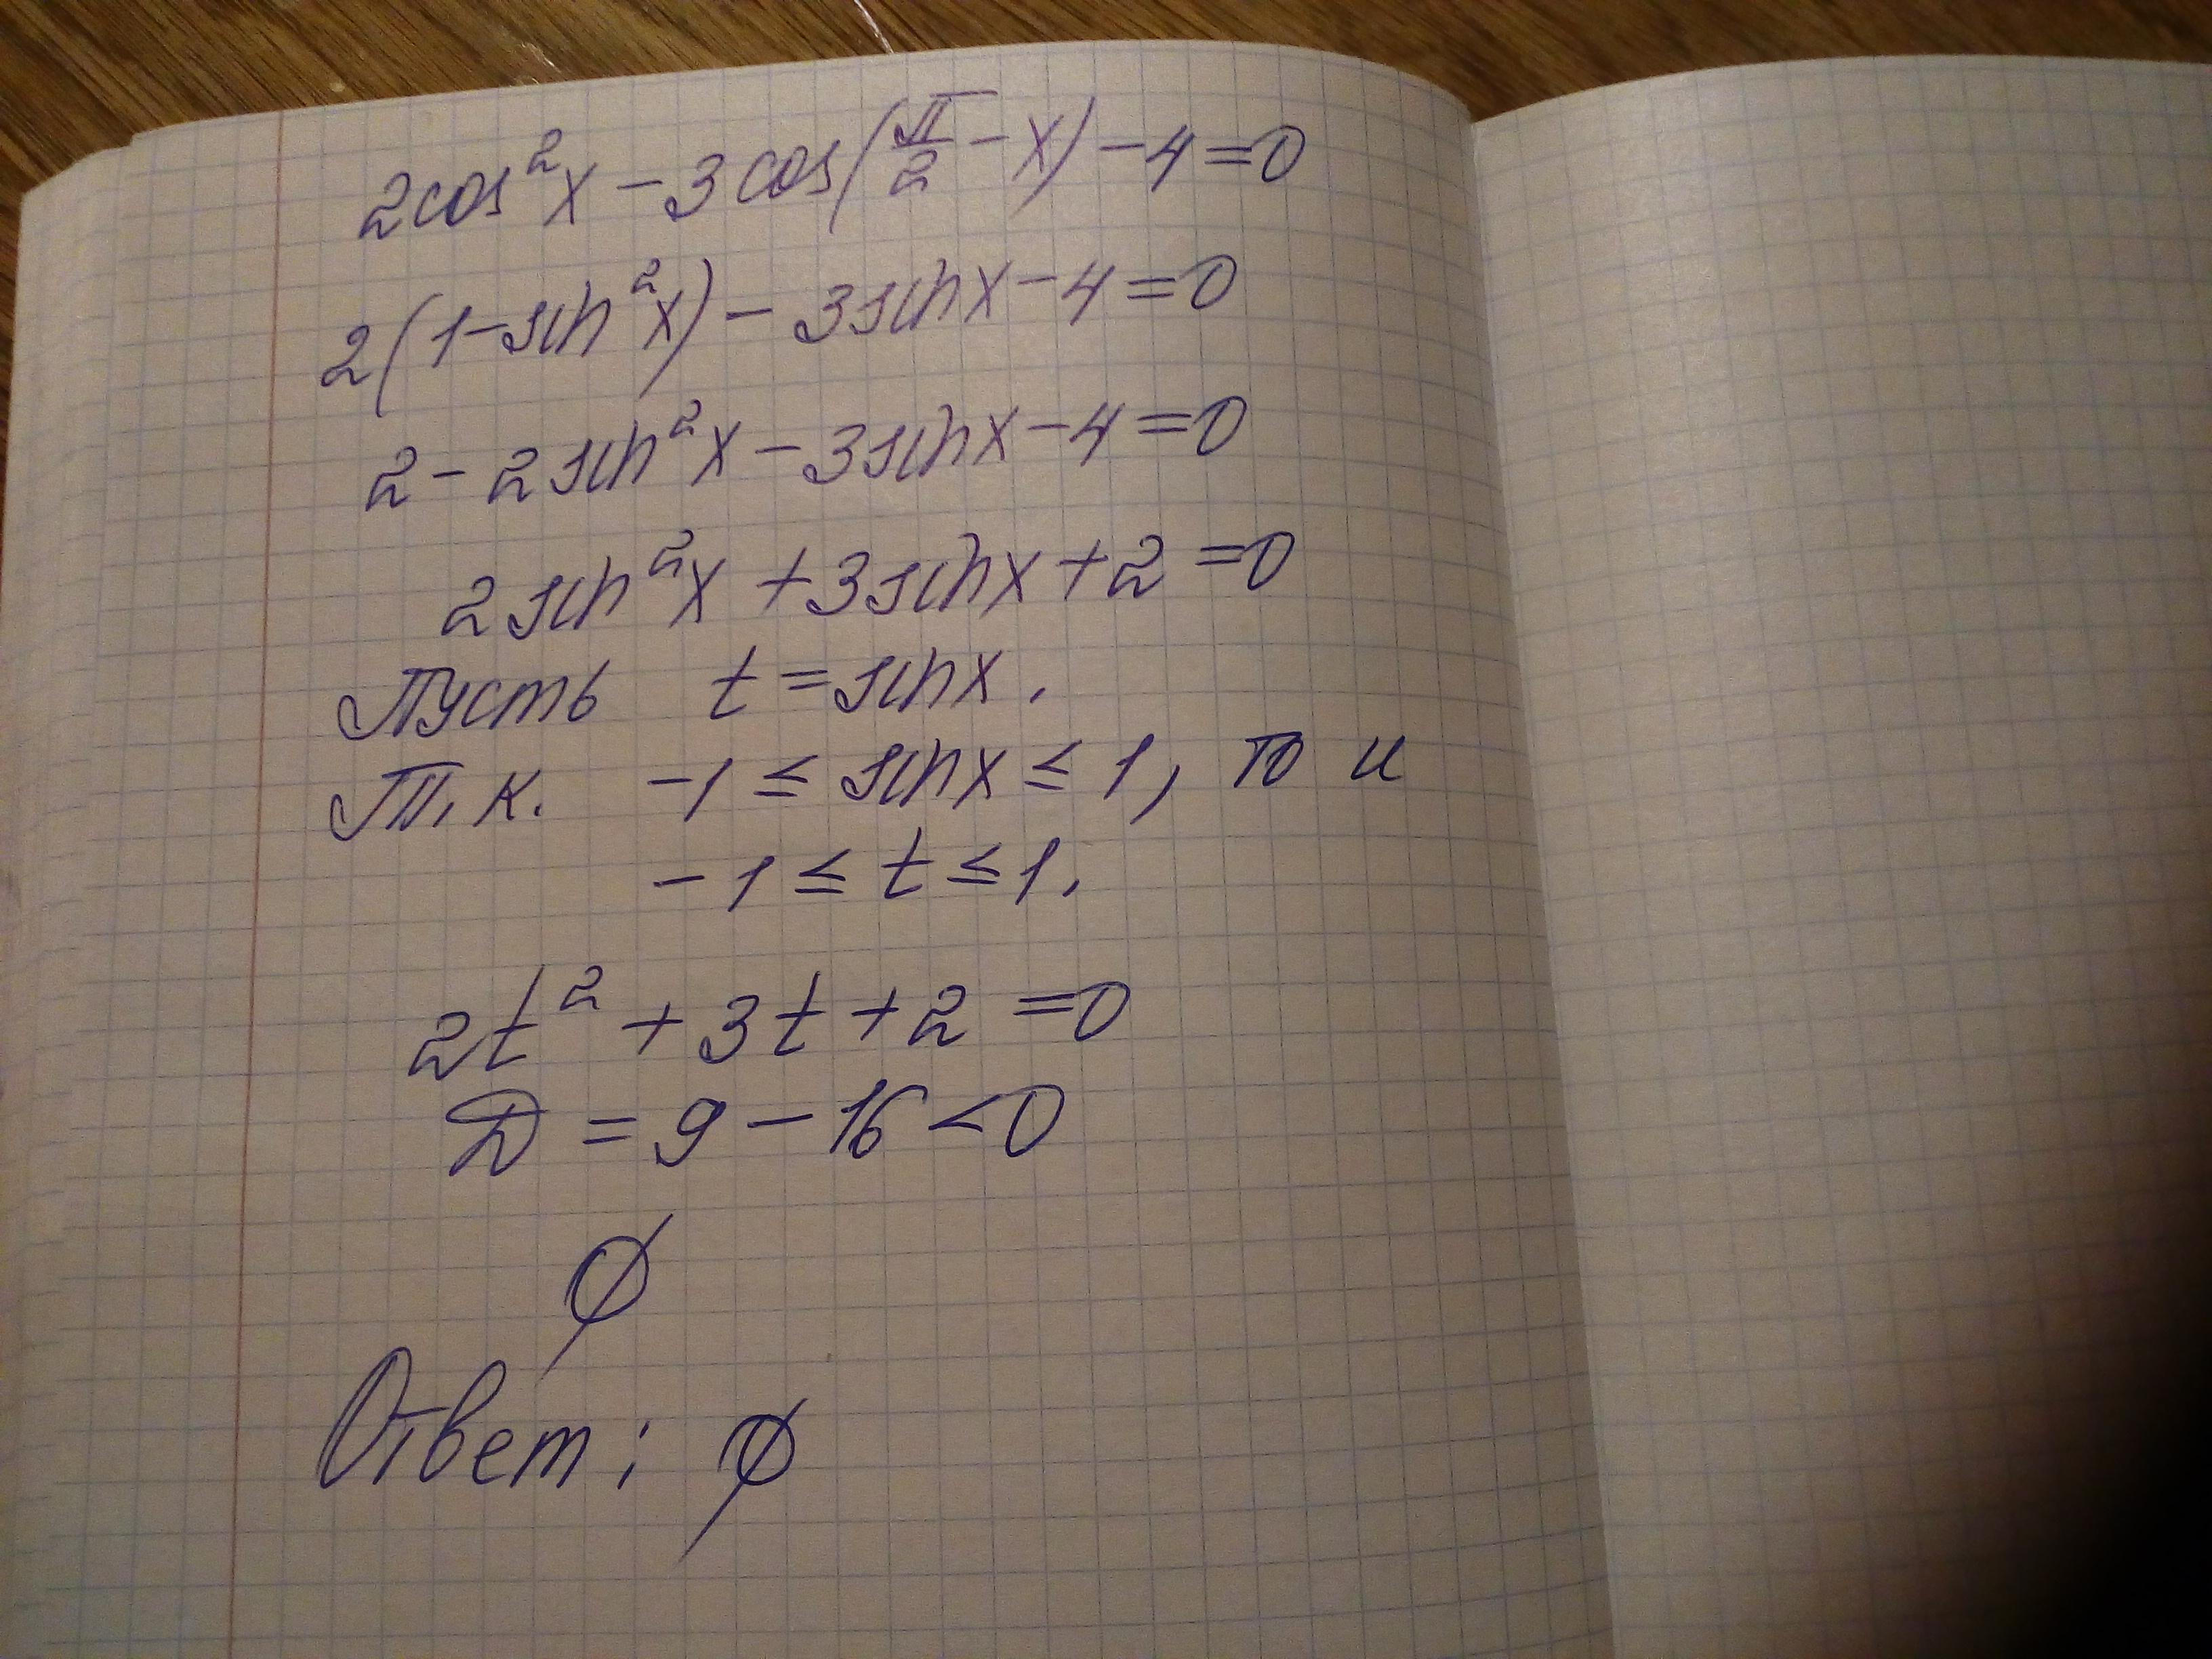 2cos²x - 3cos(π/2 - x) - 4 = 0
2(1 - sin²x) - 3sinx - 4 = 0
2 - 2sin²x - 3sinx - 4 = 0
2sin²x + 3sinx + 2 = 0
Пусть t = sinx.
Т.к. -1 ≤ sinx ≤ 1, то и
-1 ≤ t ≤ 1.
2t² + 3t + 2 = 0
D = 9 - 16 < 0
∅
Ответ: ∅